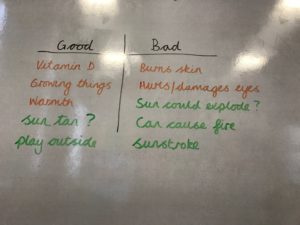 Good Bad
Vitamin D Burns skin
Growing things Hurts/damages eyes
Warmth Sun could explode?
Sun tan? Can cause fire
Play outside Sunstroke